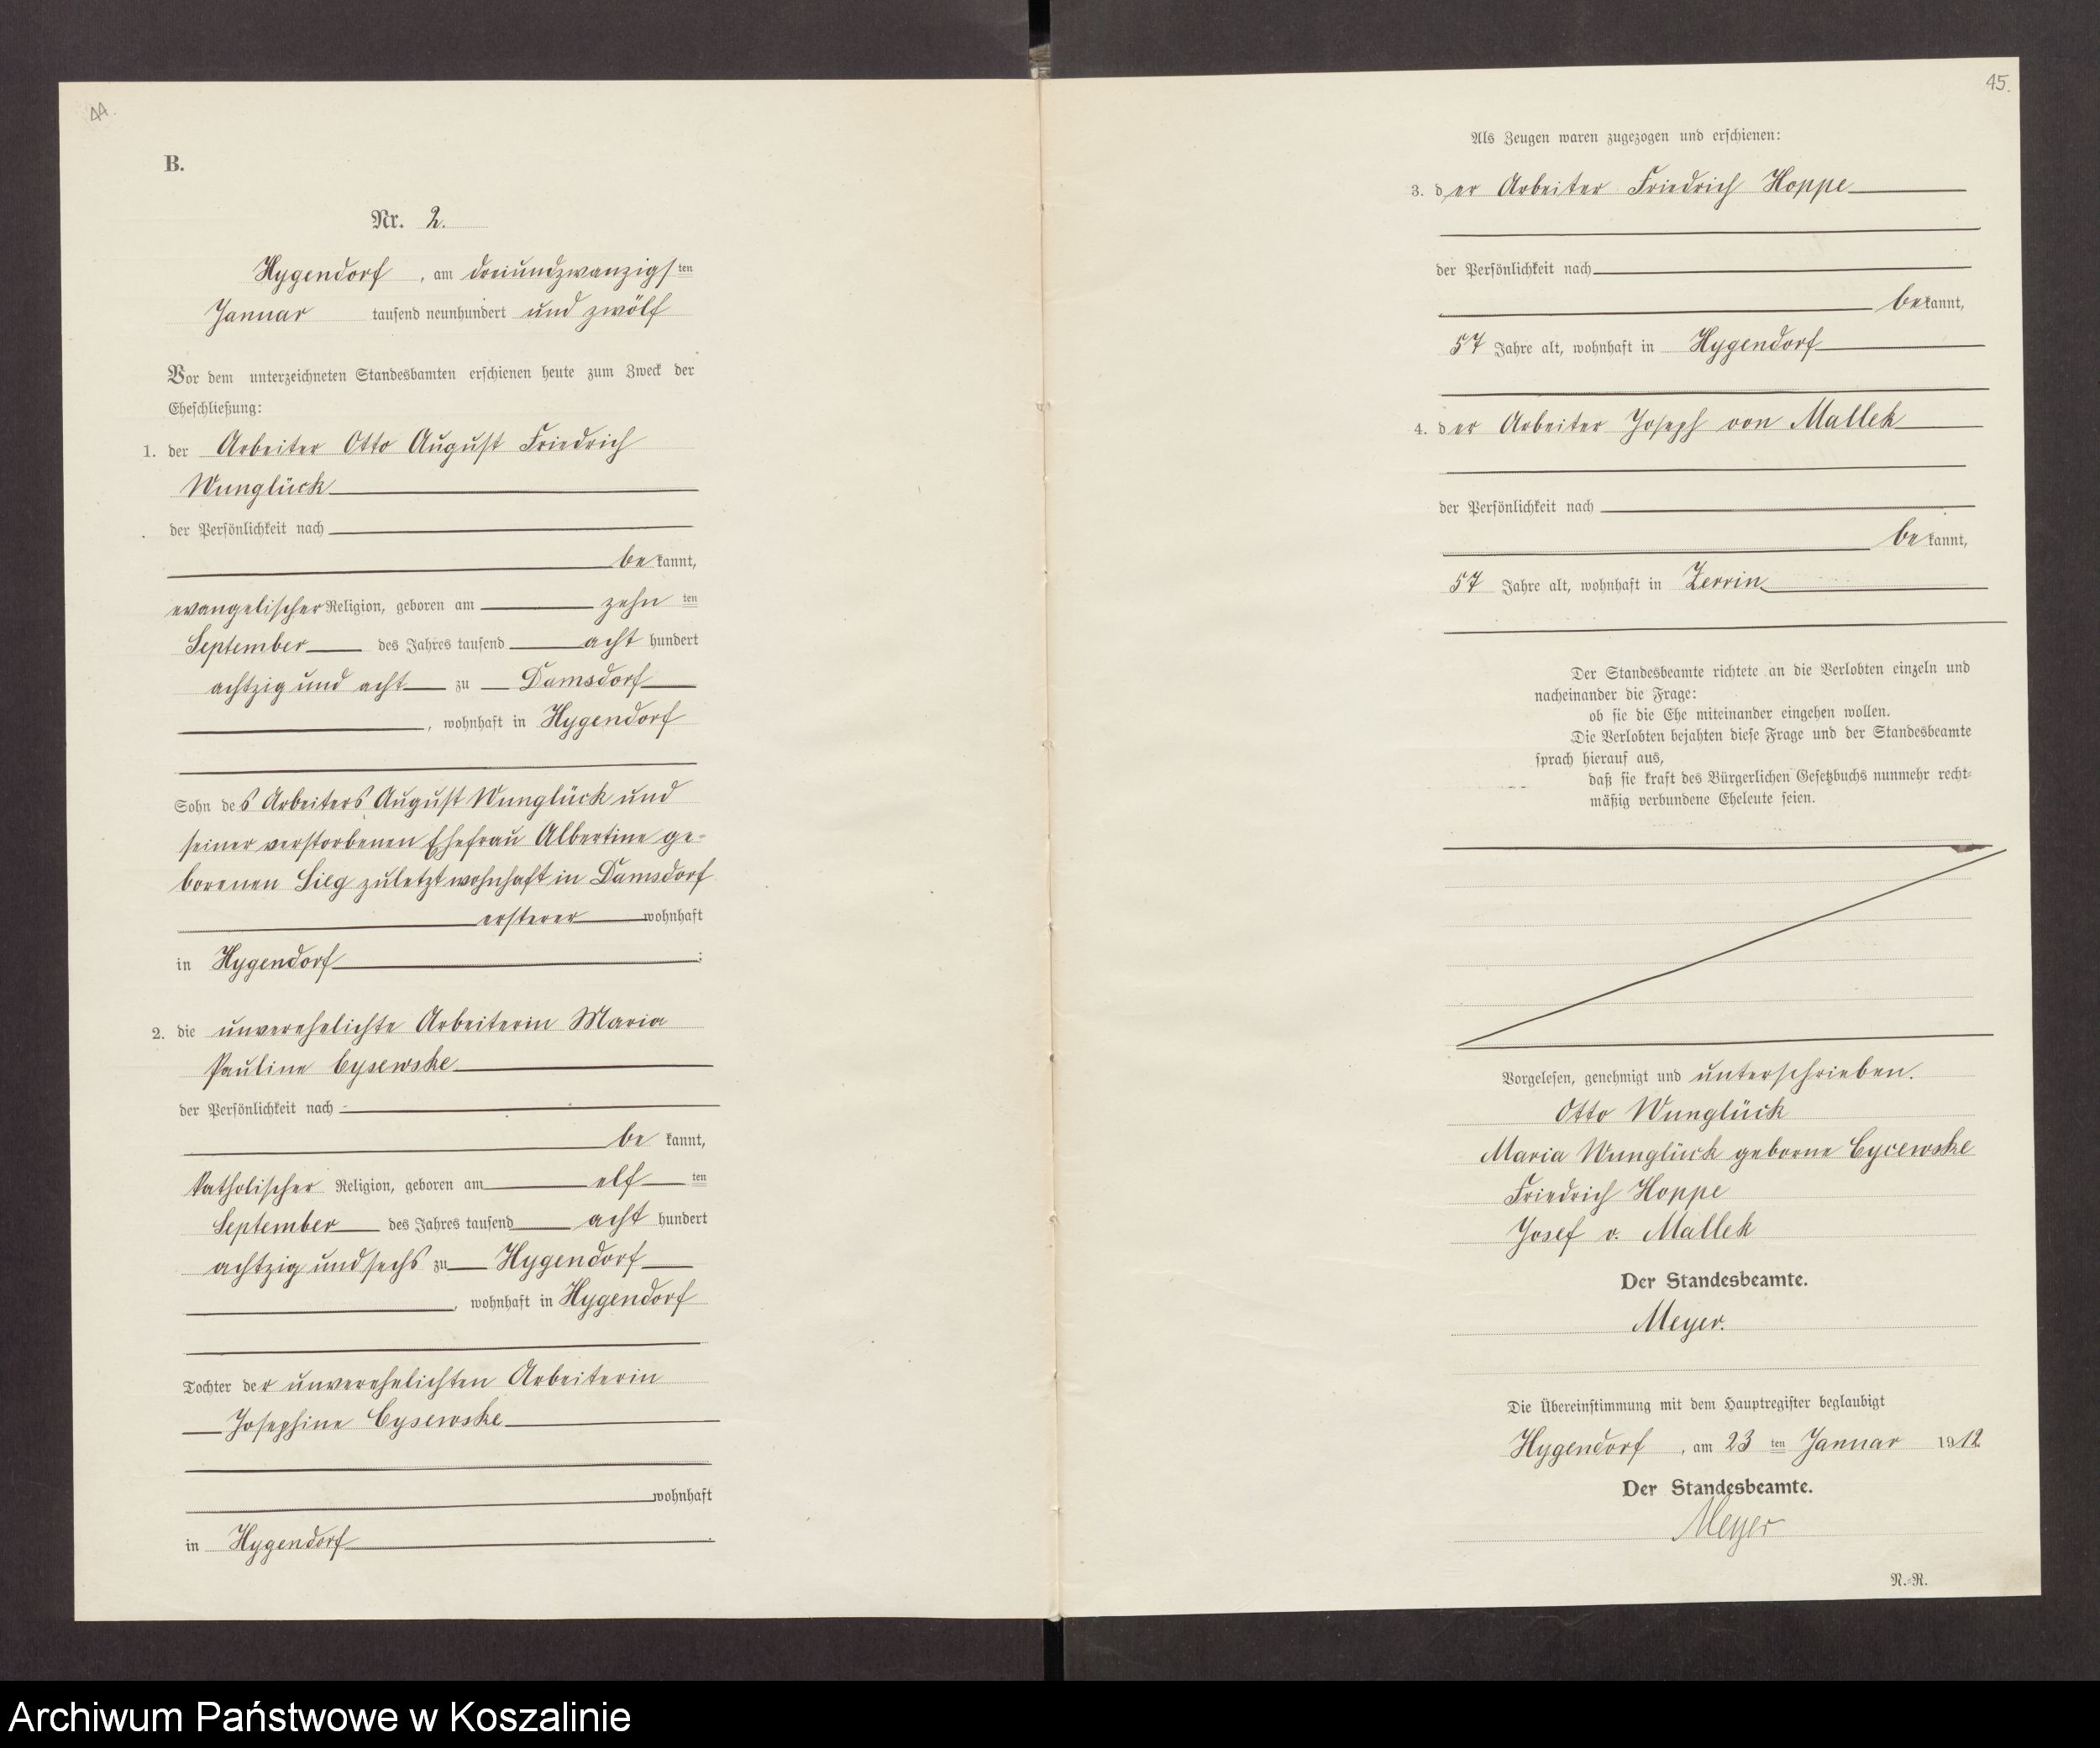 44.
B.
Nr. 2.
Hygendorf, am dreiundzwanzigsten
Januar tausend neunhundert und zwölf
Vor dem unterzeichneten Standesbamten erschienen heute zum Zweck der
Eheschließung:
1. der Arbeiter Otto August Friedrich
Wunglück
der Persönlichkeit nach
bekannt,
evangelischer Religion, geboren am zehnten
September des Jahres tausend acht hundert
achtzig und acht zu Damsdorf
, wohnhaft in Hygendorf
Sohn des Arbeiters August Wunglück und
seiner verstorbenen Ehefrau Albertine ge-
borenen Sieg zuletzt wohnhaft in Damsdorf
ersterer wohnhaft
in Hygendorf ;
2. die unverehelichte Arbeiterin Maria
Pauline Cysewske
der Persönlichkeit nach
bekannt,
katholischer Religion, geboren am elften
September des Jahres tausend acht hundert
achtzig und sechs zu Hygendorf
, wohnhaft in Hygendorf
Tochter der unverehelichten Arbeiterin
Josephine Cysewske
wohnhaft
in Hygendorf .
45.
Als Zeugen waren zugezogen und erschienen:
3. der Arbeiter Friedrich Hoppe
der Persönlichkeit nach
bekannt,
57 Jahre alt, wohnhaft in Hygendorf
4. der Arbeiter Joseph von Mallek
der Persönlichkeit nach
bekannt,
57 Jahre alt, wohnhaft in Zerrin
Der Standesbeamte richtete an die Verlobten einzeln und
nacheinander die Frage:
ob sie die Ehe miteinander eingehen wollen.
Die Verlobten bejahten diese Frage und der Standesbeamte
sprach hierauf aus,
daß sie kraft des Bürgerlichen Gesetzbuchs nunmehr recht-
mäßig verbundene Eheleute seien.
Vorgelesen, genehmigt und unterschrieben.
Otto Wunglück
Maria Wunglück geborne Cycewske
Friedrich Hoppe
Josef v. Mallek
Der Standesbeamte.
Meyer.
Die Übereinstimmung mit dem Hauptregister beglaubigt
Hygendorf, am 23 ten Januar 1912.
Der Standesbeamte.
Meyer
N.-R.
Archiwum Państwowe w Koszalinie